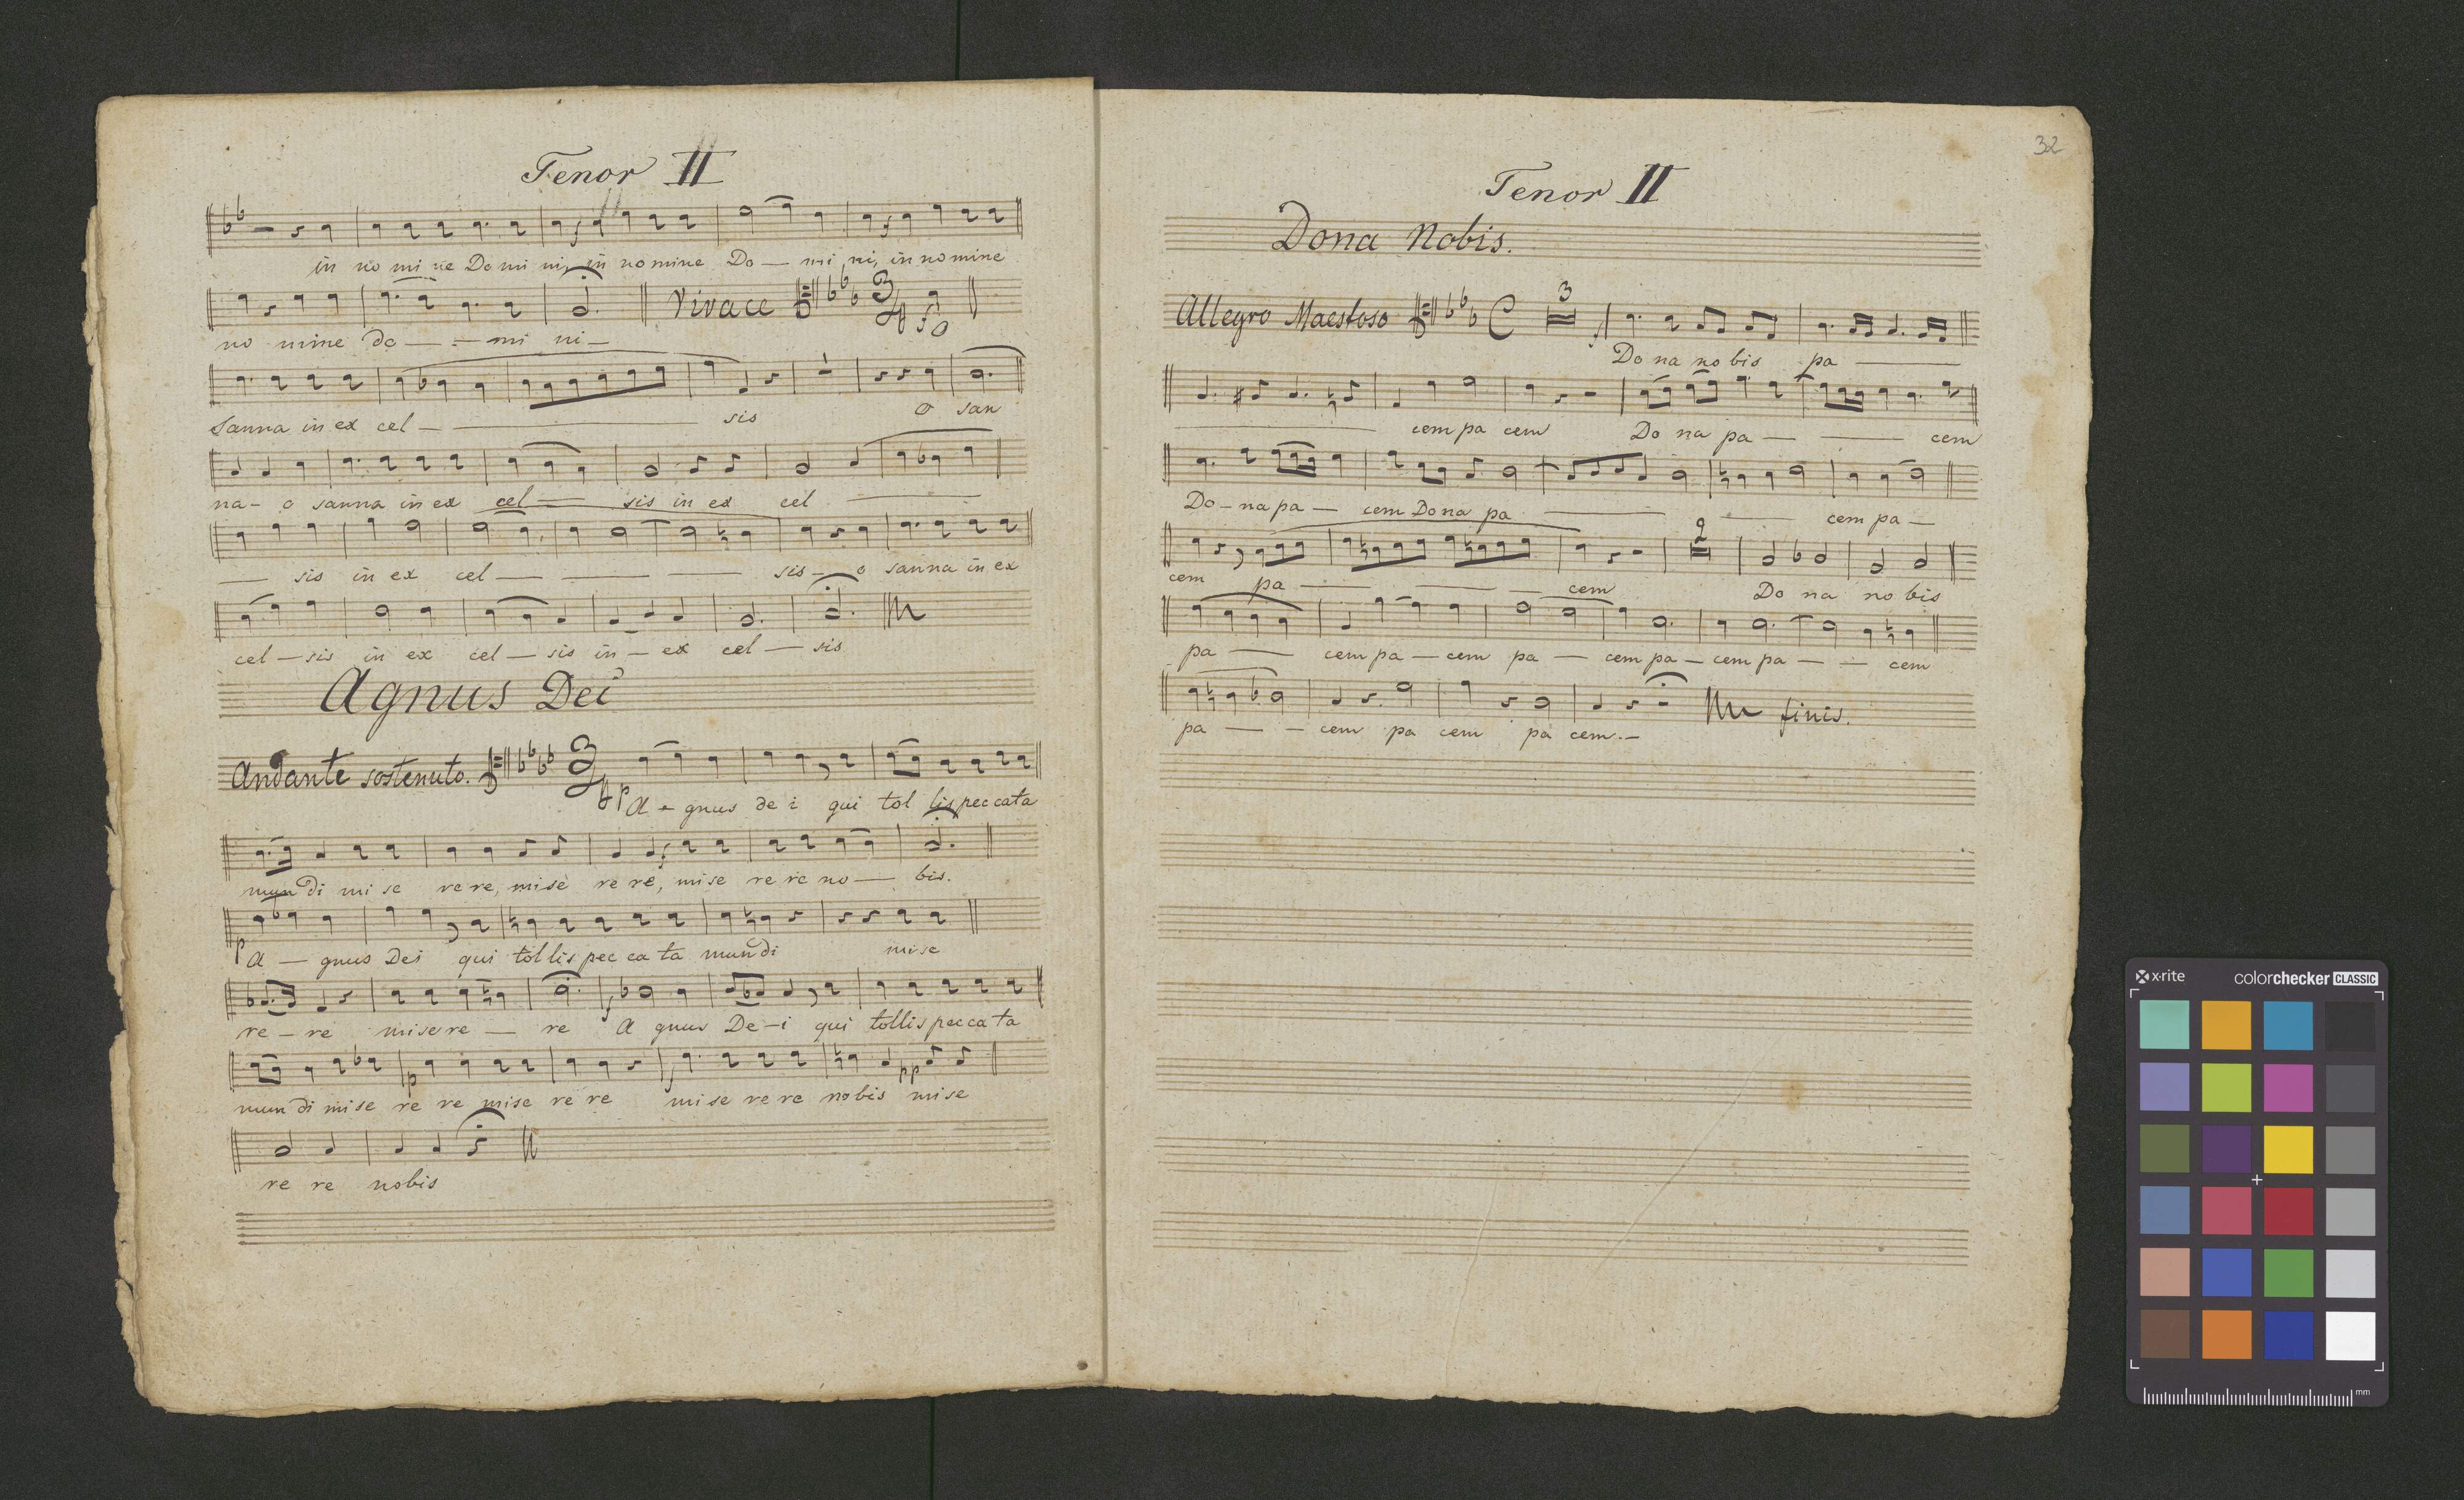 Tenor II
in no mi ne Do mi ni, in nomine Do — mi ni, in nomine
Vivace 3 4 f O
no mine do — — mi ni —
Sanna in ex cel — sis o san
na - o sanna in ex cel — sis in ex cel —
— sis in ex cel — — — sis — o sanna in ex
cel — sis in ex cel — sis in — ex cel — sis
Agnus Dei
Andante sostenuto. 3 4 p
A - gnus de i qui tol lis peccata
mundi mi se re re, mise re re, mise re re no — bis.
p A — gnus Dei qui tollis pec ca ta mundi mise
re — re misere — re A gnus De — i qui tollis pecca ta
p pp
mun di mi se re re mise re re mi se re re nobis mise
re re nobis
32
Tenor II
Dona Nobis.
Allegro Maestoso C 3 f
Do na no bis pa —
— cem pa cem Do na pa — — cem
Do — na pa — cem Dona pa — — cem pa —
2
cem pa — — — cem Do na no bis
pa — cem pa — cem pa — cem pa — cem pa — — cem
finis.
pa — — cem pa cem pa cem. —
x-rite colorchecker CLASSIC
mm